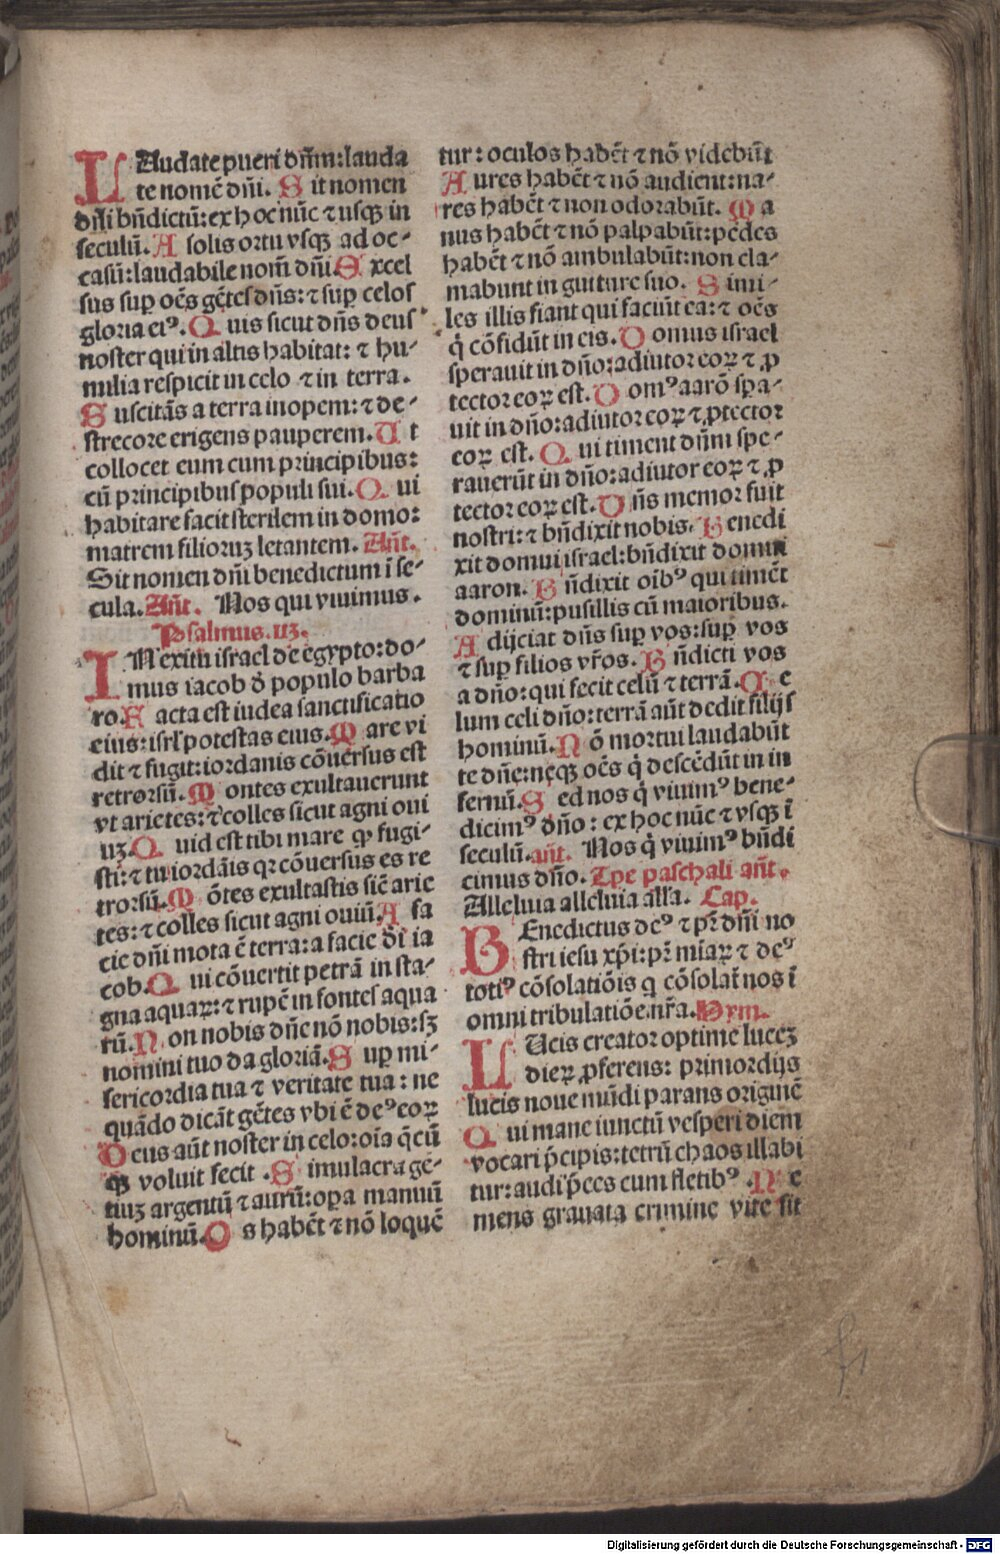 LAudate pueri dñm: lauda
te nomē dñi. Sit nomen
dñi bñdictū: ex hoc nūc ⁊ usqꝫ in
seculū. A solis ortu vsqꝫ ad oc-
casū: laudabile nom̄ dñi. Excel
sus suꝑ oēs gētes dñs: ⁊ suꝑ celos
gloria eiꝰ. Quis sicut dñs deus
noster qui in altis habitat: ⁊ hu-
milia respicit in celo ⁊ in terra.
Suscitās a terra inopem: ⁊ de-
strecore erigens pauperem. Ut
collocet eum cum principibus:
cū principibus populi sui. Qui
habitare facit sterilem in domo:
matrem filioruꝫ letantem. Añt.
Sit nomen dñi benedictum ī se-
cula. Añt. Nos qui vivimus.
Psalmus. uꝫ.
IN exitu israel de egypto: do-
mus iacob d̄ populo barba
ro. Facta est iudea sanctificatio
eius: isrl̓ potestas eius. Mare vi
dit ⁊ fugit: iordanis cōversus est
retrorsū. Montes exultauerunt
vt arietes: ⁊ colles sicut agni oui
uꝫ. Quid est tibi mare ꝙ fugi-
sti: ⁊ tu iordāis qꝛ cōuersus es re
trorsū. Mōtes exultastis sic̄ arie
tes: ⁊ colles sicut agni ouiū. A fa
cie dñi mota ē terra: a facie d̄i ia
cob. Qui cōuertit petrā in sta-
gna aquaꝝ: ⁊ rupē in fontes aqua
rū. Non nobis dñe nō nobis: sꝫ
nomini tuo da gloriā. Suꝑ mi-
sericordia tua ⁊ veritate tua: ne
quādo dicāt gētes vbi ē deꝰ eoꝝ
Deus aūt noster in celo: oīa q̄cū
qꝫ voluit fecit. Simulacra gē-
tiuꝫ argentū ⁊ aurū: oꝑa manuū
hominū. Os habēt ⁊ nō loquē
tur: oculos habēt ⁊ nō videbūt
Aures habēt ⁊ nō audient: na-
res habēt ⁊ non odorabūt. Ma
nus habēt ⁊ nō palpabūt: pedes
habēt ⁊ nō ambulabūt: non cla-
mabunt in guiture suo. Simi-
les illis fiant qui faciūt ea: ⁊ oēs
q̄ cōfidūt in eis. Domus israel
sperauit in dño: adiutor eoꝝ ⁊ ꝓ
tector eoꝝ est. Domꝰ aarō spa-
uit in dño: adiutor eoꝝ ⁊ ꝓtector
eoꝝ est. Qui timent dñm spe-
rauerūt in dño: adiutor eoꝝ ⁊ ꝓ
tector eoꝝ est. Dñs memor fuit
nostri: ⁊ bñdixit nobis. Benedi
xit domui israel: bñdixit domui
aaron. Bñdixit oībꝰ qui timēt
dominū: pusillis cū maioribus.
Adijciat dñs suꝑ vos: suꝑ vos
⁊ suꝑ filios vr̄os. Bñdicti vos
a dño: qui fecit celū ⁊ terrā. Ce
lum celi dño: terrā aūt dedit filijs
hominū. Nō mortui laudabūt
te dñe: neqꝫ oēs q̄ descēdūt in in
fernū. Sed nos q̄ viuimꝰ bene-
dicimꝰ dño: ex hoc nūc ⁊ vsqꝫ ī
seculū. añt. Nos q̄ viuimꝰ bñdi
cimus dño. Tpe paschali añt.
Alleluia alleluia alla. Cap.
BEnedictus deꝰ ⁊ pr̄ dñi no
stri iesu xp̄i: pr̄ mīaꝝ ⁊ deꝰ
totiꝰ cōsolatiōis q cōsolat̄ nos ī
omni tribulatiōe nr̄a. Hym.
LUcis creator optime luceꝫ
dieꝝ ꝓferens: primordijs
lucis noue mūdi parans originē
Qui mane iunctū vesperi diem
vocari p̄cipis: tetrū chaos illabi
tur: audi p̄ces cum fletibꝰ. Ne
mens grauata crimine vite sit
f1
Digitalisierung gefördert durch die Deutsche Forschungsgemeinschaft - DFG